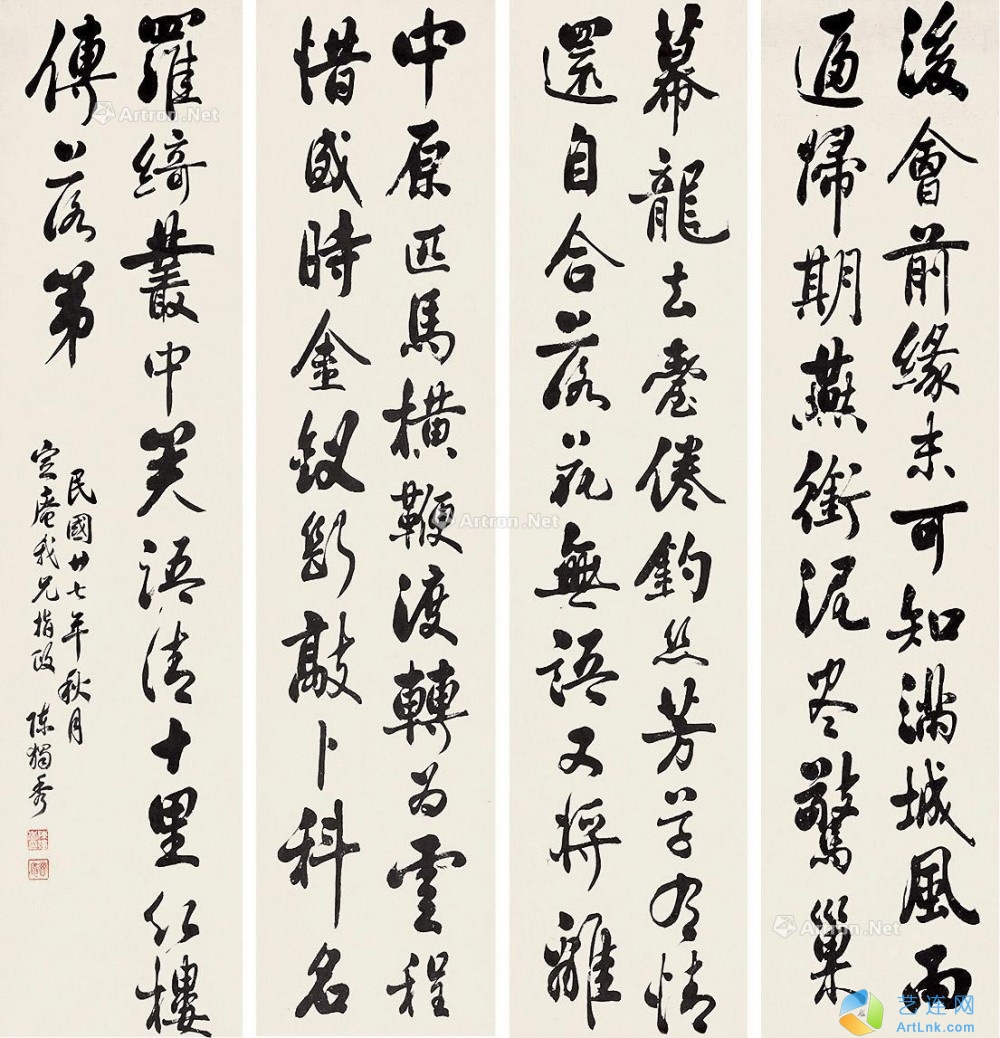 後會前緣未可知滿城風雨
逼歸期燕銜泥盡驚巢
幕龍去臺倦釣絲芳草有情
還自合落花無語又將離
中原匹馬橫鞭渡轉為雲程
惜盛時金釵斷敲卜科名
羅綺叢中笑語清十里紅樓
傳落第
民國廿七年秋月
定庵我兄指政 陳獨秀
Artron.Net
Artron.Net
Artron.Net
Artron.Net
艺连网
ArtLnk.com